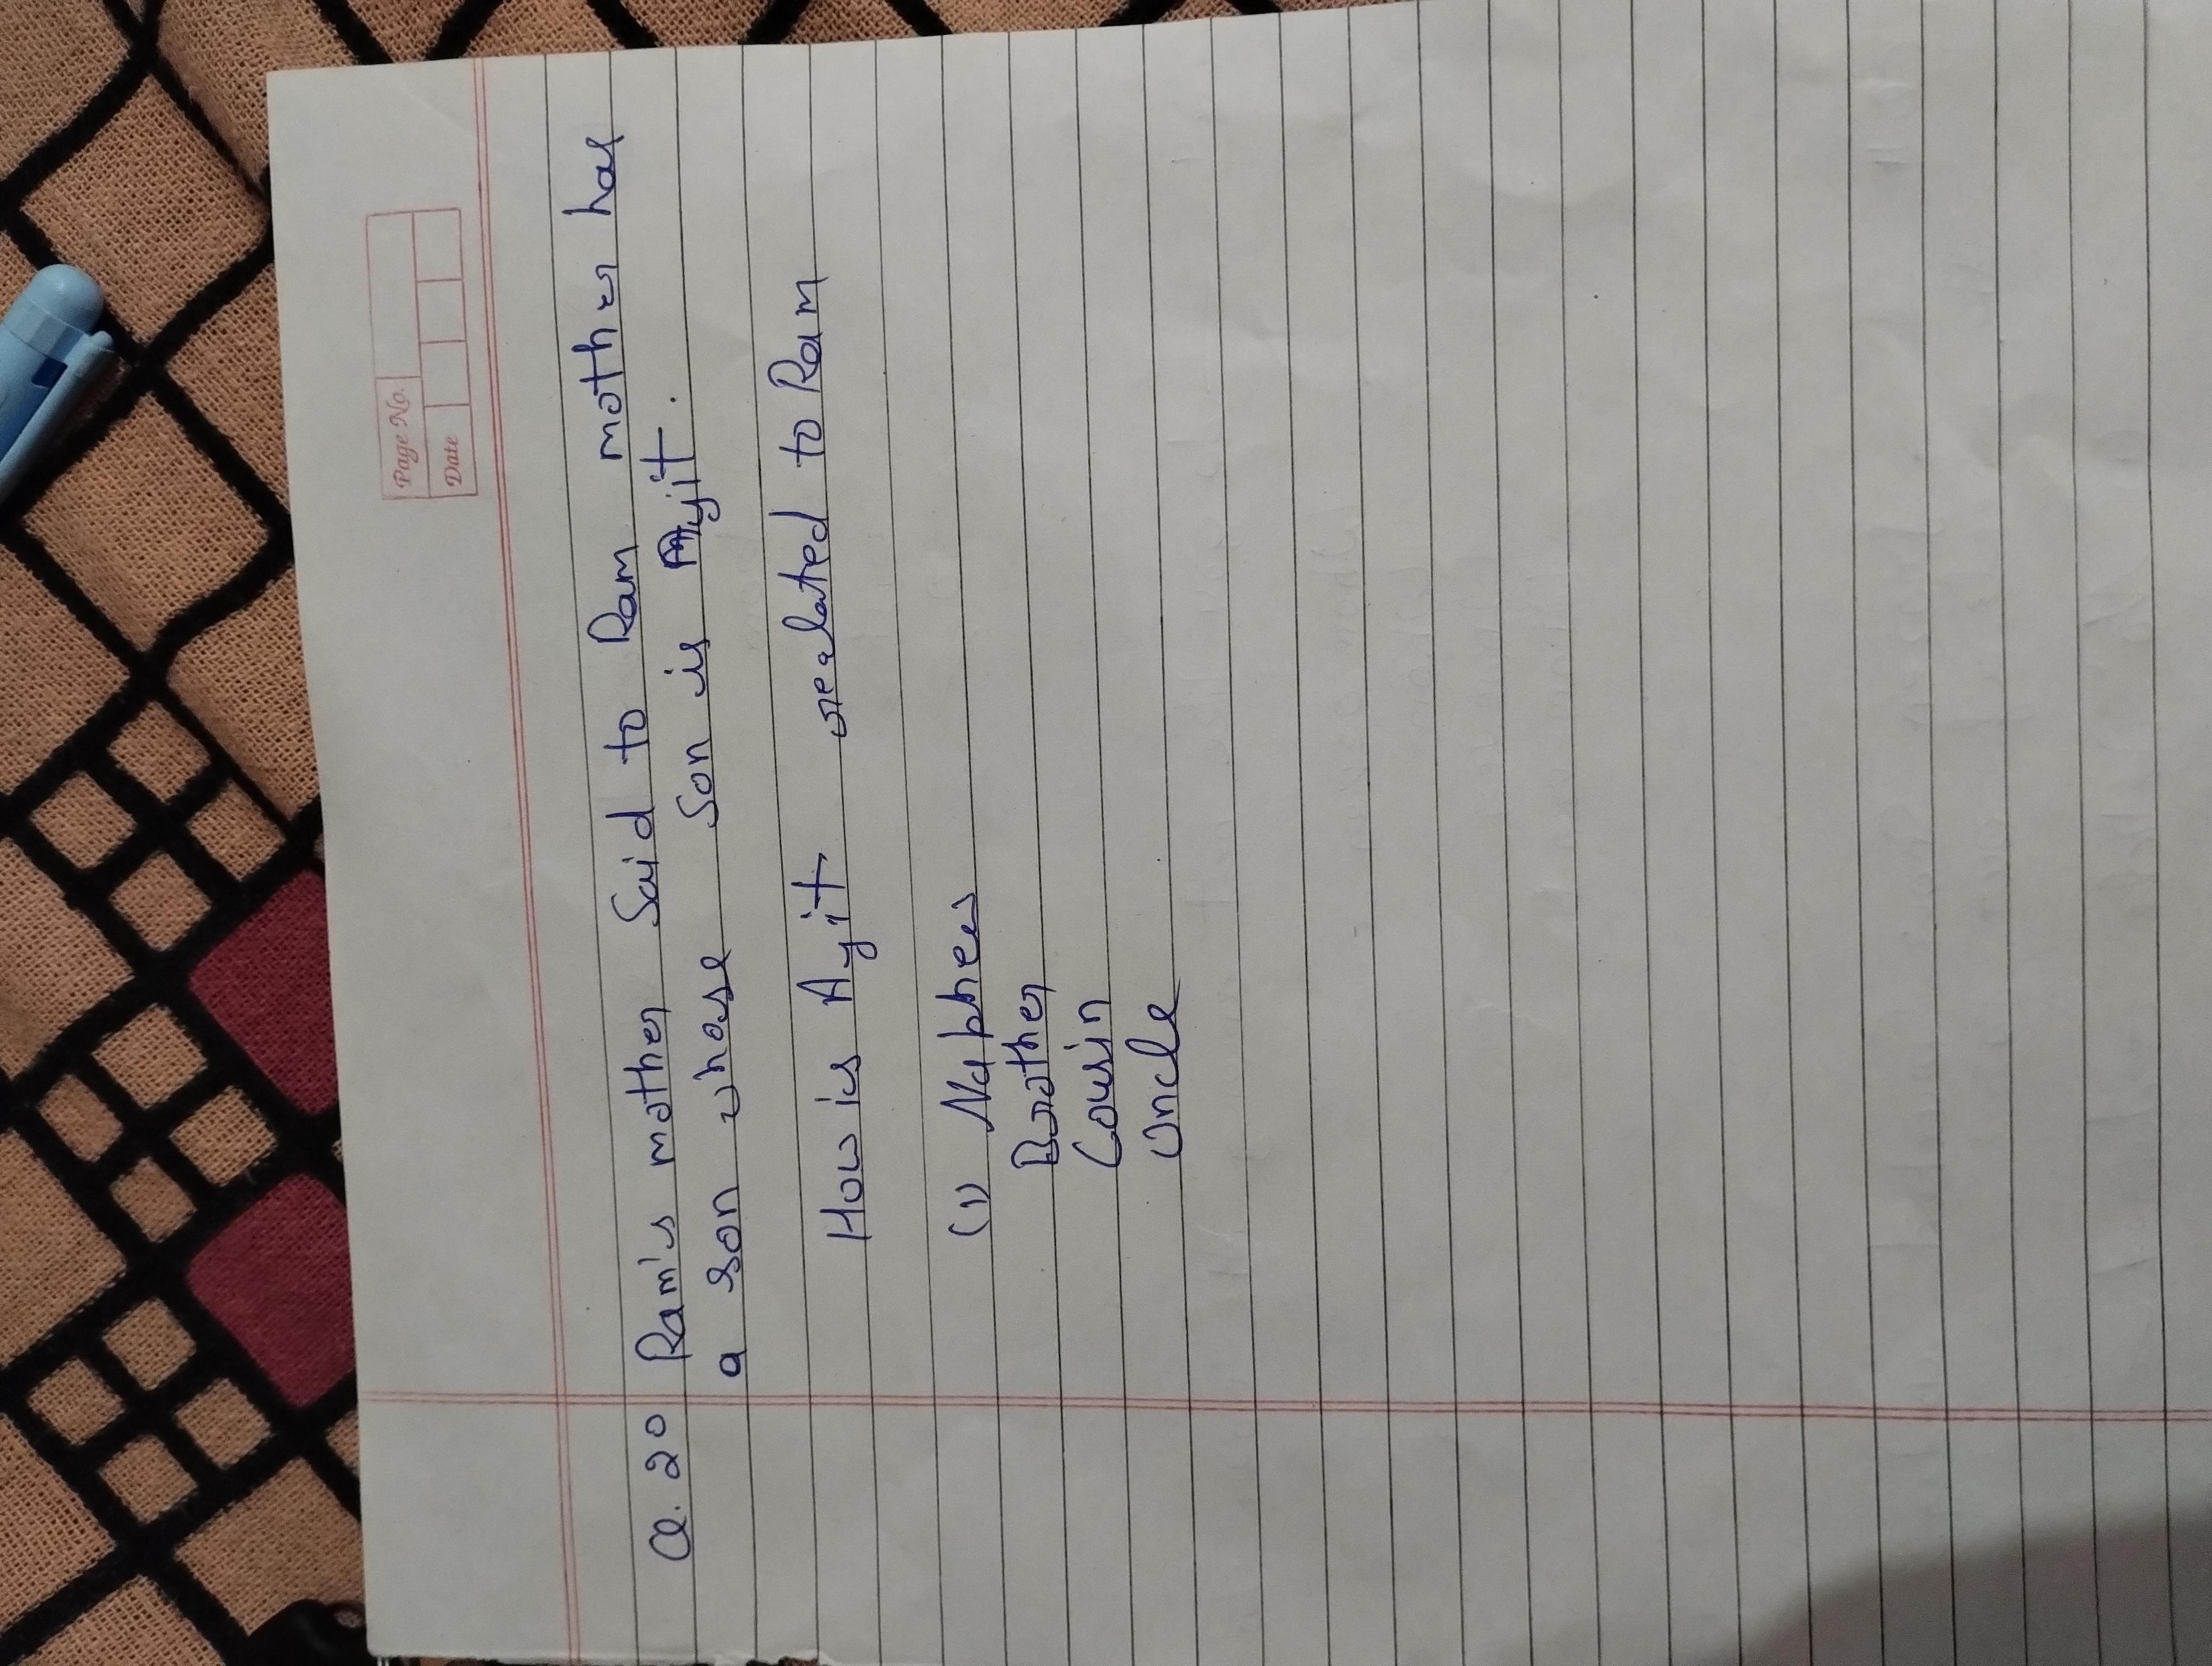 Page No.
Date
Q. 20 Ram's mother Said to Ram mother has
a son whose son is Ayit.
How is Ayit realated to Ram
(1) Naphew
Brother
Cousin
Uncle